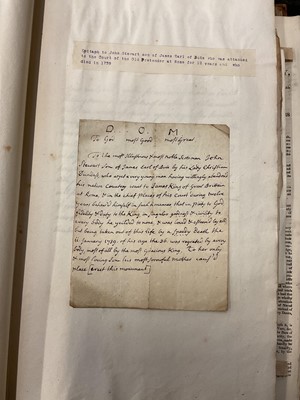 Epitaph to John Stewart son of James Earl of Bute who was attached
to the Court of the Old Pretender at Rome for 12 years and who
died in 1739
D. O. M
To God most Good most Great
To the most Illustrious & most noble
Stewart Son of James Earl of Bute by his Lady Christian
who when a very young man having willingly abandoned
his native Country went to James King of Great Britain
at Rome, & in the chief places of his Court during twelve
years behav'd himself in such manner that in piety to God
fidelity & duty to the King in singular goodness & civility to
every body, he yielded to none, & was loved & esteem'd by all
but being taken out of this life by a speedy Death the
11 January 1739. of his age the 36. was regreted by every
body, most of all by the most gracious King. To her only
& most loving Son his most sorrowful mother caus'd
place [erect this monument]